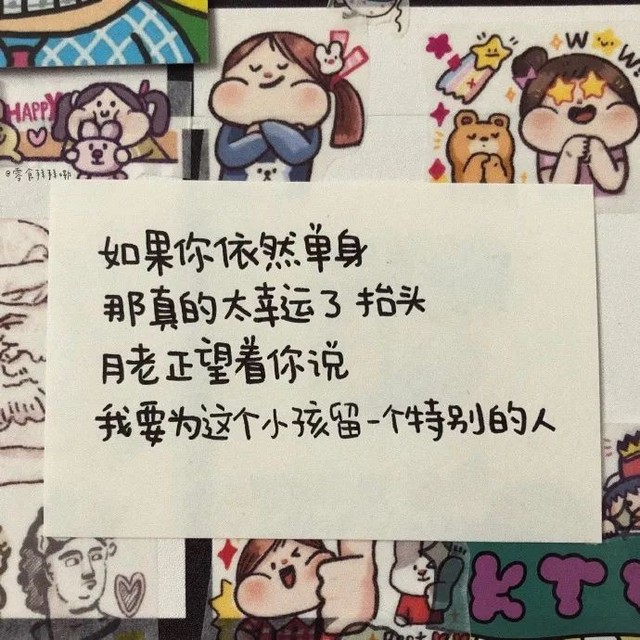 WOW
HAPPY
@零食拜拜啦
如果你依然单身
那真的太幸运了 抬头
月老正望着你说
我要为这个小孩留一个特别的人
KTV